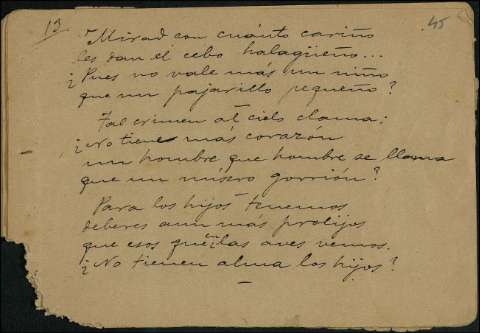 13
45
"Mirad con cuánto cariño
les dan el cebo halagüeño...
¿Pues no vale más un niño
que un pajarillo pequeño?
Tal crimen al cielo clama:
¿No tiene más corazón
un hombre que hombre se llama
que un mísero gorrión?
Para los hijos tenemos
deberes aun más prolijos
que esos que en las aves vemos.
¿No tienen alma los hijos?